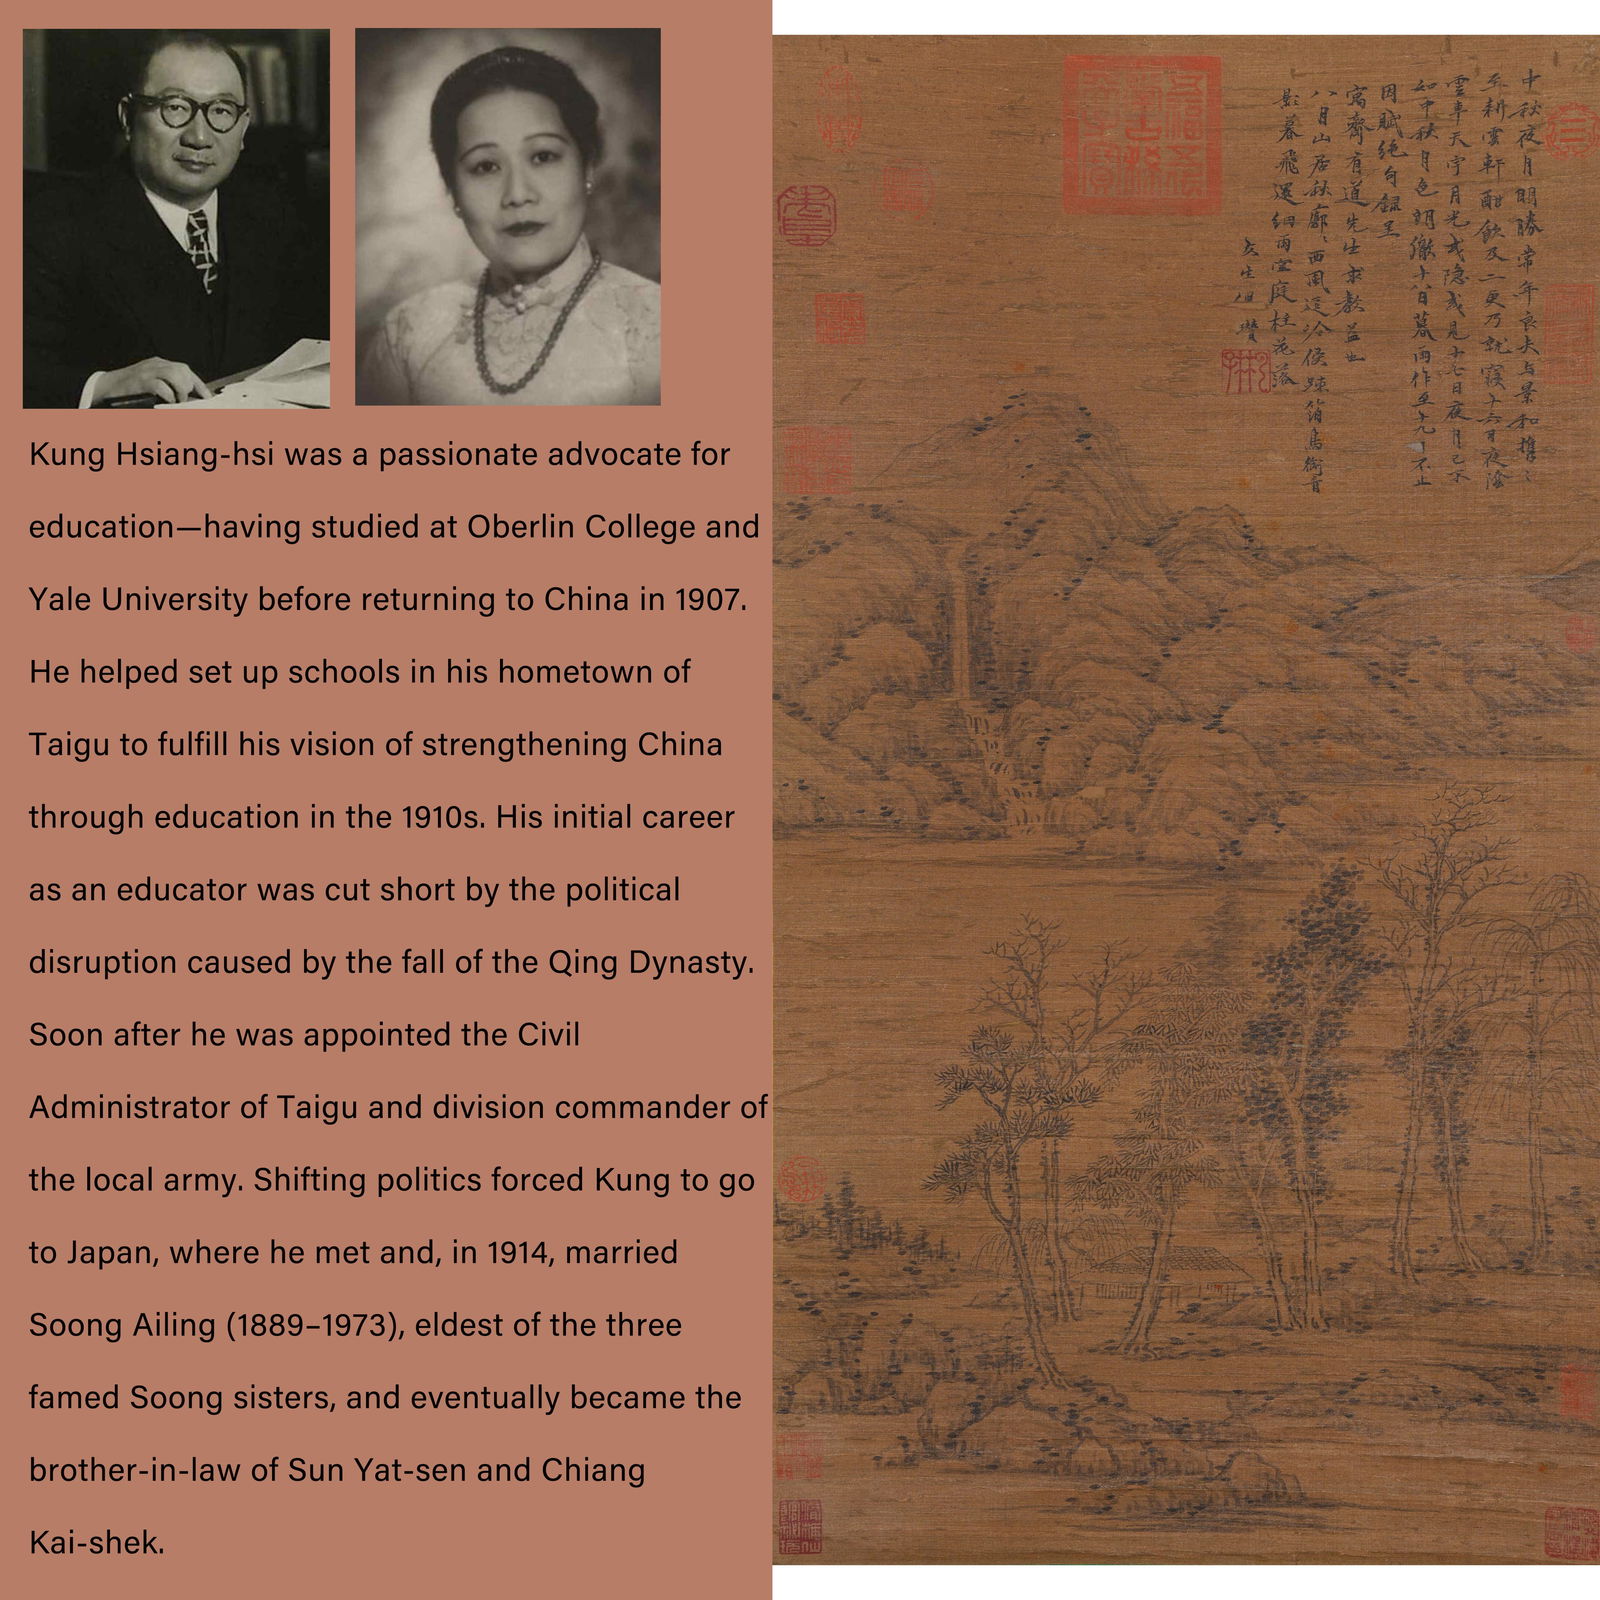 Kung Hsiang-hsi was a passionate advocate for
education—having studied at Oberlin College and
Yale University before returning to China in 1907.
He helped set up schools in his hometown of
Taigu to fulfill his vision of strengthening China
through education in the 1910s. His initial career
as an educator was cut short by the political
disruption caused by the fall of the Qing Dynasty.
Soon after he was appointed the Civil
Administrator of Taigu and division commander of
the local army. Shifting politics forced Kung to go
to Japan, where he met and, in 1914, married
Soong Ailing (1889–1973), eldest of the three
famed Soong sisters, and eventually became the
brother-in-law of Sun Yat-sen and Chiang
Kai-shek.
中秋夜月明勝常年良夫与景和攜
至耕雲軒酣飲及二更乃就寢十六日夜陰
雲車天宇月光或隱或見十七日夜月已不
如中秋月色朗徹十八日暮雨作至十九日不止
因賦絕句錄呈
寓齋有道先生求教益也
八月山居秋廓西風這冷侯踈箔鳥銜青
影暮飛還細雨空庭桂花落